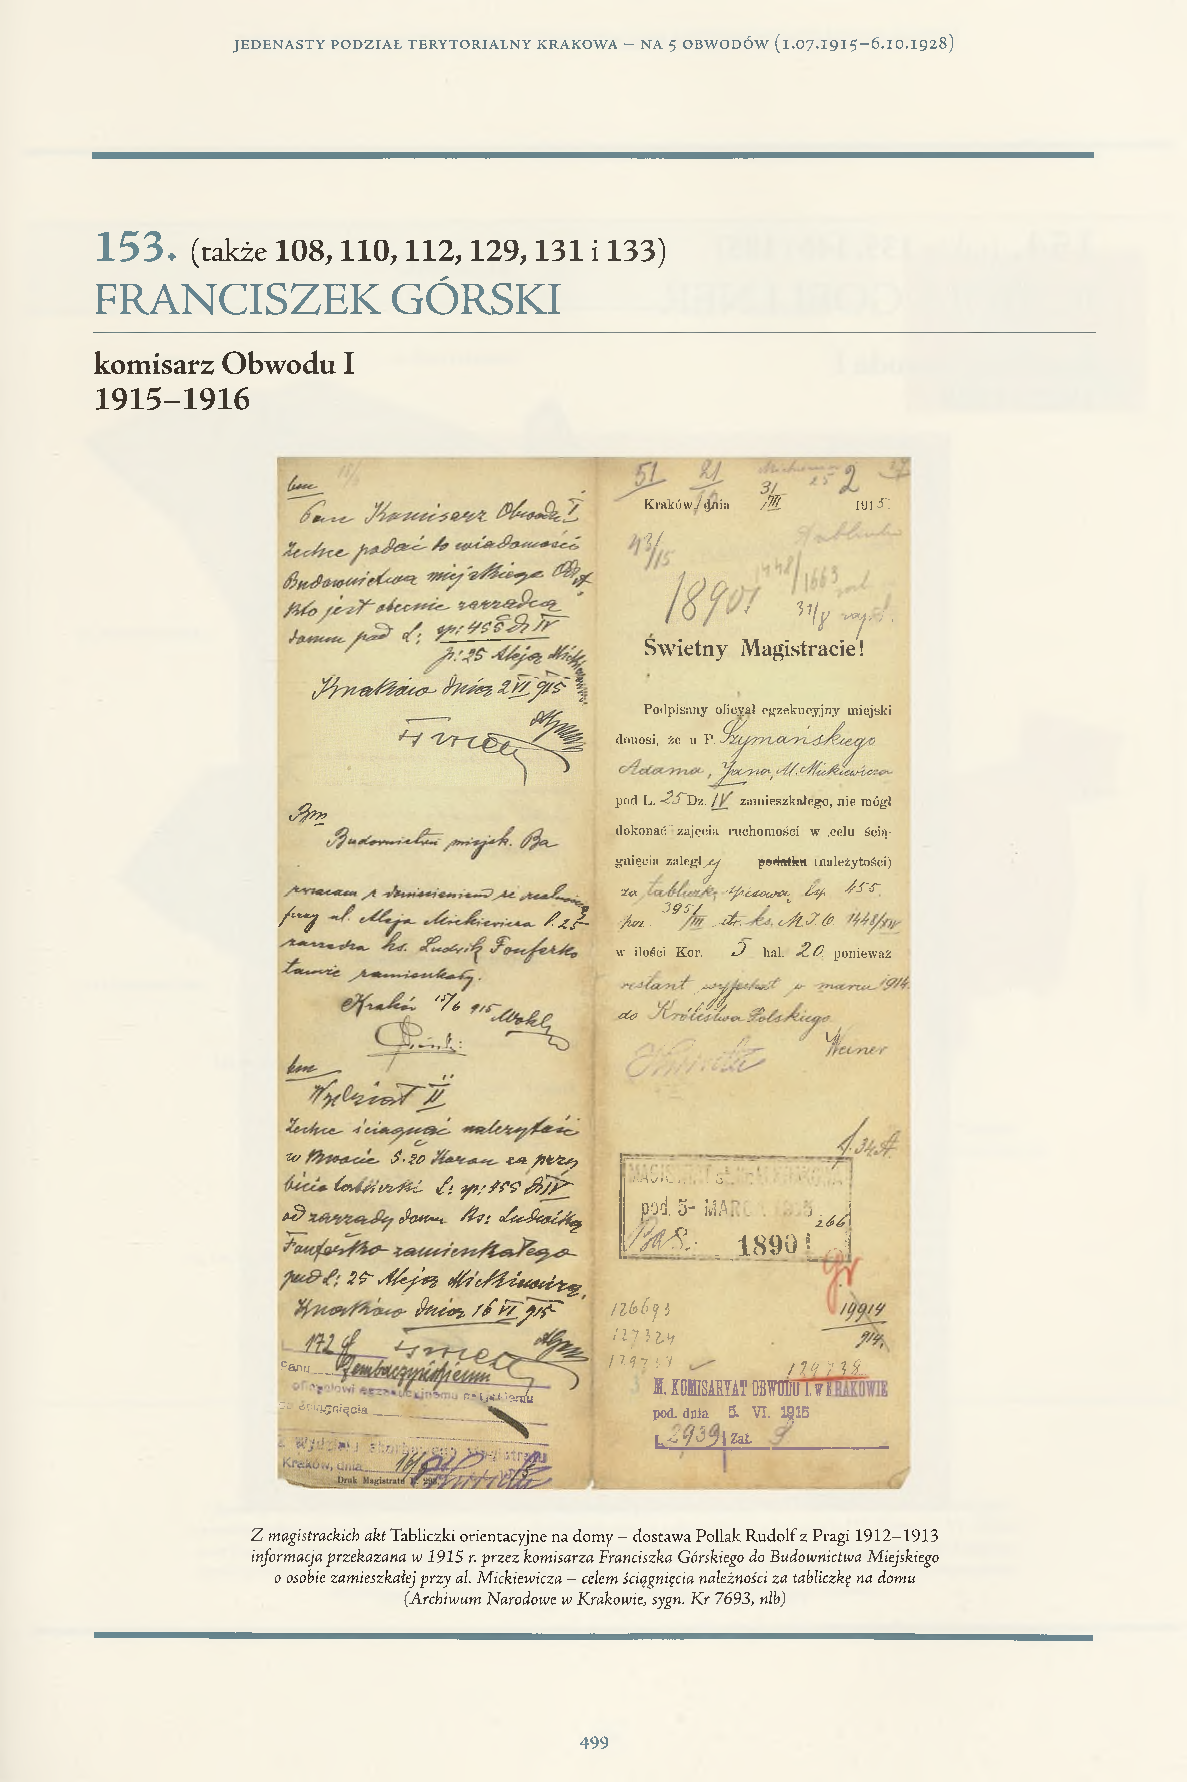 JEDENASTY PODZIAŁ TERYTORIALNY KRAKOWA – NA 5 OBWODÓW (1.07.1915–6.10.1928)
153. (także 108, 110, 112, 129, 131 i 133)
FRANCISZEK GÓRSKI
komisarz Obwodu I
1915–1916
Pan Komisarz Obwodu I
Zechce podać do wiadomości
Budownictwa miejskiego
kto jest obecnie zarządcą
domu pod L: sp: 455 Dz IV
p: 25 Aleja Mickiewicza
Kraków dnia 2 VI 915
Budownictwu miejsk.
zwracam z doniesieniem że realność
przy ul. Aleja Mickiewicza l. 25
zarządza ks. Ludwik Fonferko
tamże zamieszkały.
Kraków 15/6 915
Wydział II
Zechce ściągnąć należytość
w kwocie 5·20 Koron za przy
bicie tabliczki L: sp: 455 Dz IV
od zarządcy domu Ks: Ludwika
Fonferko zamieszkałego
pod L: 25 Aleja Mickiewicza.
Kraków dnia 16 VI 915
172
Panu
oficyałowi egzekucyjnemu miejskiemu
do ściągnięcia
Z Wydziału skarbowego Magistratu
Kraków, dnia 16/
Druk Magistratu
51 21 2
Kraków, dnia 3/III 1915.
43/15
1448/1663
1890!
31/8
Świetny Magistracie!
Podpisany oficyał egzekucyjny miejski
donosi, że u P. Szymańskiego
Adama, Jana, Al. Mickiewicza
pod L. 25 Dz. IV zamieszkałego, nie mógł
dokonać zajęcia ruchomości w celu ścią-
gnięcia zaległej podatku (należytości)
za tabliczkę spisową Lsp. 455
poz. 395/III str. ks. M.I.O. 1448/XIV
w ilości Kor. 5 hal. 20 ponieważ
restant wyjechał w marcu 1914.
do Królestwa Polskiego
Weiner
MAGISTRAT
pod. 5- MARCA 1915
266
1890!
126693
19914
127324
914
129738
M. KOMISARYAT OBWODU I. W KRAKOWIE
pod. dnia 5. VI. 1915
L. 2939 | Zał.
Z magistrackich akt Tabliczki orientacyjne na domy – dostawa Pollak Rudolf z Pragi 1912–1913
informacja przekazana w 1915 r. przez komisarza Franciszka Górskiego do Budownictwa Miejskiego
o osobie zamieszkałej przy al. Mickiewicza – celem ściągnięcia należności za tabliczkę na domu
(Archiwum Narodowe w Krakowie, sygn. Kr 7693, nlb)
499